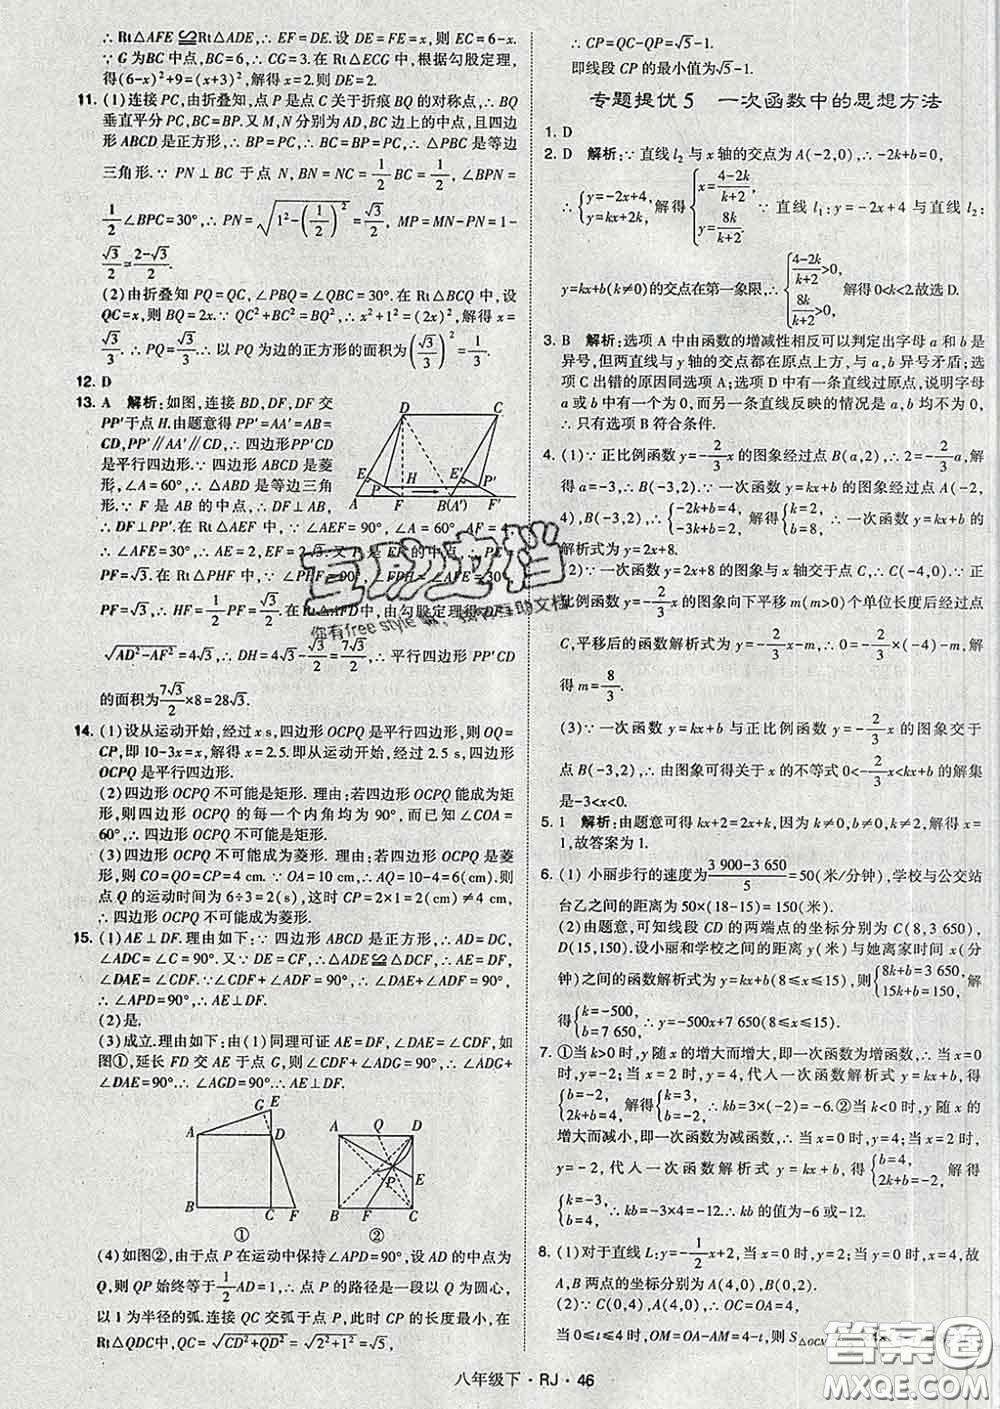 ∴Rt△AFE≌Rt△ADE,∴EF=DE.设DE=FE=x,则EC=6-x.
∵G为BC中点,BC=6,∴CG=3.在Rt△ECG中,根据勾股定理,
得(6-x)²+9=(x+3)²,解得x=2.则DE=2.
11. (1)连接PC,由折叠知,点P是点C关于折痕BQ的对称点,∴BQ
垂直平分PC,∴BP=BC.又M,N分别为AD,BC边上的中点,且四边
形ABCD是正方形,∴BP=PC.∴BC=BP=PC,∴△PBC是等边
三角形.∵PN⊥BC于点N,BN=NC=1/2BC=1/2,∠BPN=
1/2∠BPC=30°,∴PN=√(1²-(1/2)²)=√3/2,MP=MN-PN=1-
√3/2=(2-√3)/2.
(2)由折叠知PQ=QC,∠PBQ=∠QBC=30°.在Rt△BCQ中,设
QC=x,则BQ=2x.∵QC²+BC²=BQ²,∴x²+1²=(2x)²,解得x=
√3/3.∴PQ=√3/3.以PQ为边的正方形的面积为(√3/3)²=1/3.
12. D
13. A 解析:如图,连接BD,DF,DF交
PP'于点H.由题意得PP'=AA'=AB=
CD,PP'∥AA'∥CD,∴四边形PP'CD
是平行四边形.∵四边形ABCD是菱
形,∠A=60°,∴△ABD是等边三角
形.∵AF=FB,∴DF⊥AB,
∴DF⊥PP'.在Rt△AEF中,∵∠AEF=90°,∠A=60°,AF=4,
∴∠AFE=30°,∴AE=2,EF=2√3.∵P是EF的中点,∴PE=
PF=√3.在Rt△PHF中,∵∠PHF=90°,∠FPH=∠AFE=30°,
PF=√3,∴HF=1/2PF=√3/2.在Rt△ADF中,由勾股定理得DF=
√(AD²-AF²)=4√3,∴DH=4√3-√3/2=7√3/2,∴平行四边形PP'CD
的面积为7√3/2×8=28√3.
14. (1)设从运动开始,经过x s,四边形OCPQ是平行四边形,则OQ=
CP,即10-3x=x,解得x=2.5.即从运动开始,经过2.5 s,四边形
OCPQ是平行四边形.
(2)四边形OCPQ不可能是矩形.理由:若四边形OCPQ能成为矩
形,则四边形OCPQ的每一个内角均为90°,即∠COA=90°.∵∠COA=
60°,∴四边形OCPQ不可能是矩形.
(3)四边形OCPQ不可能成为菱形.理由:若四边形OCPQ是菱
形,则CO=QO=CP=4(cm).∵OA=10(cm),∴AQ=10-4=6(cm).则
点Q的运动时间为6÷3=2(s),这时CP=2×1=2(cm).∵CP≠4(cm),
∴四边形OCPQ不可能成为菱形.
15. (1)AE⊥DF.理由如下:∵四边形ABCD是正方形,∴AD=DC,
∠ADE=∠C=90°.又∵DE=CF,∴△ADE≌△DCF,∴AE=DF,
∠DAE=∠CDF.∵∠CDF+∠ADF=90°,∴∠DAE+∠ADF=90°,
∴∠APD=90°,∴AE⊥DF.
(2)是.
(3)成立.理由如下:由(1)同理可证AE=DF,∠DAE=∠CDF,如
图①,延长FD交AE于点G,则∠CDF+∠ADG=90°,∴∠ADG+
∠DAE=90°.∴∠AGD=90°,∴AE⊥DF.
(4)如图②,由于点P在运动中保持∠APD=90°,设AD的中点为
Q,则QP始终等于1/2AD=1,∴点P的路径是一段以Q为圆心,
以1为半径的弧.连接QC交弧于点P,此时CP的长度最小.在
Rt△QDC中,QC=√(CD²+QD²)=√(2²+1²)=√5,
∴CP=QC-QP=√5-1.
即线段CP的最小值为√5-1.
专题提优5 一次函数中的思想方法
1. D
2. D 解析:∵直线l₂与x轴的交点为A(-2,0),∴-2k+b=0,
∴{y=-2x+4, y=kx+2k, 解得{x=(4-2k)/(k+2), y=8k/(k+2). ∵直线l₁:y=-2x+4与直线l₂:
y=kx+b(k≠0)的交点在第一象限,∴{(4-2k)/(k+2)>0, 8k/(k+2)>0, 解得0<k<2.故选D.
3. B 解析:选项A中由函数的增减性相反可以判定出字母a和b是
异号,但两直线与y轴的交点都在原点上方,与a,b异号矛盾;选
项C出错的原因同选项A;选项D中一条直线过原点,说明字母
a或b中有一个为0,而另一条直线反映的情况是a,b均不为0.
∴只有选项B符合条件.
4. (1)∵正比例函数y=-2/3x的图象经过点B(a,2),∴2=-2/3a,解
得a=-3,∴B(-3,2).∵一次函数y=kx+b的图象经过点A(-2,
4),B(-3,2),∴{-2k+b=4, -3k+b=2, 解得{k=2, b=8, ∴一次函数y=kx+b的
解析式为y=2x+8.
(2)∵一次函数y=2x+8的图象与x轴交于点C,∴C(-4,0).∵正
比例函数y=-2/3x的图象向下平移m(m>0)个单位长度后经过点
C,∴平移后的函数解析式为y=-2/3x-m,∴0=-2/3×(-4)-m,解
得m=8/3.
(3)∵一次函数y=kx+b与正比例函数y=-2/3x的图象交于
点B(-3,2),∴由图象可得关于x的不等式0<-2/3x<kx+b的解集
是-3<x<0.
5. 1 解析:由题意可得kx+2=2x+k,因为k≠0,b≠0,所以解得x=
1,故答案为1.
6. (1)小丽步行的速度为(3 900-3 650)/5=50(米/分钟),学校与公交站
台乙之间的距离为50×(18-15)=150(米).
(2)由题意,可知线段CD的两端点的坐标分别为C(8,3 650),
D(15,150).设小丽和学校之间的距离y(米)与她离家时间x(分
钟)之间的函数解析式为y=kx+b(8≤x≤15),则{8k+b=3 650, 15k+b=150, 解
得{k=-500, b=7 650, ∴y=-500x+7 650(8≤x≤15).
7. ①当k>0时,y随x的增大而增大,即一次函数为增函数,∴当
x=0时,y=-2;当x=2时,y=4,代人一次函数解析式y=kx+b得
{b=-2, 2k+b=4, 解得{k=3, b=-2, ∴kb=3×(-2)=-6.②当k<0时,y随x的
增大而减小,即一次函数为减函数,∴当x=0时,y=4;当x=2时,
y=-2,代人一次函数解析式y=kx+b得{b=4, 2k+b=-2, 解得
{k=-3, b=4, ∴kb=-3×4=-12.∴kb的值为-6或-12.
8. (1)对于直线L:y=-1/2x+2,当x=0时,y=2;当y=0时,x=4,故
A,B两点的坐标分别为A(4,0),B(0,2).
(2)∵C(0,4),A(4,0),∴OC=OA=4,
当0≤t≤4时,OM=OA-AM=4-t,则S△OCM
D C E P H E' P' A F B(A') F'
G E A D B C F ①
A Q D P E B C ②
互助文档
你有free style 我有互助文档
答案圈
MXQE.COM
八年级下·RJ·46